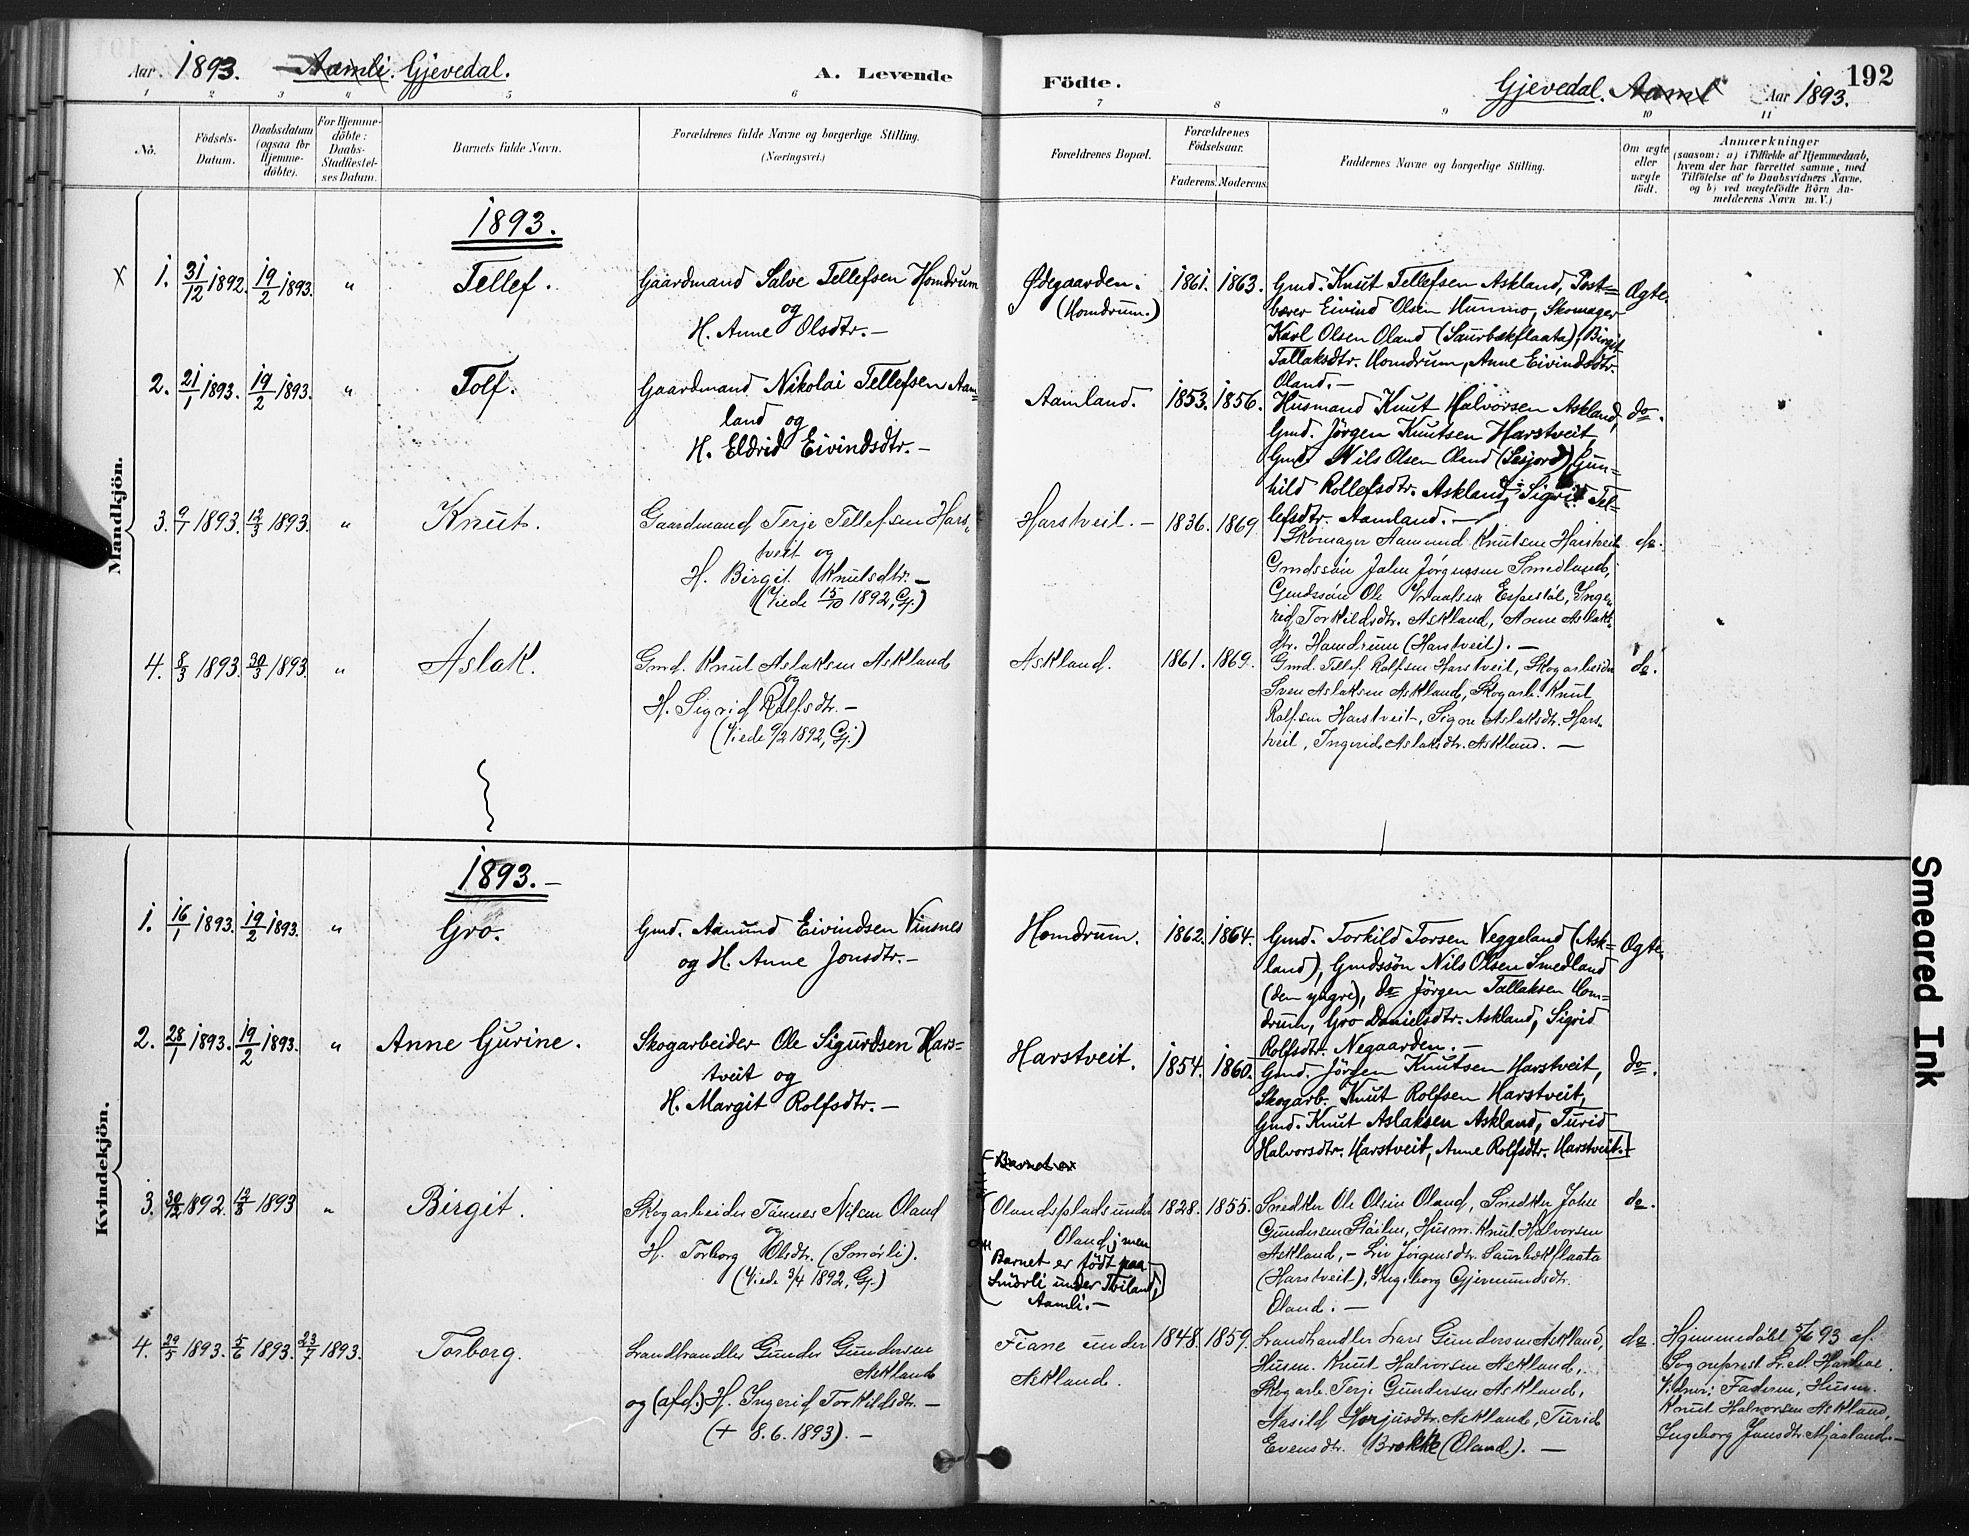 Aar. 1893. Aamli. Gjevedal. A. Levende
Födte. Gjevedal. Aamli Aar 1893. 192
1 2 3 4 5 6 7 8 9 10 11
Nô. Födsels-Datum. Daabsdatum (ogsaa for Hjemme-döbte). For Hjemme-döbte: Daabs-Stadfæstel-ses Datum. Barnets fulde Navn. Forældrenes fulde Navne og borgerlige Stilling. (Næringsvei.)
Forældrenes Bopæl. Forældrenes Födselsaar. Faderens. Moderens. Faddernes Navne og borgerlige Stilling. Om ægte eller uægte födt. Anmærkninger (saasom: a) i Tilfælde af Hjemmedaab, hvem der har forrettet samme, med Tilföielse af to Daabsvidners Navne, og b) ved uægtefödte Börn An-melderens Navn m. V.)
Mandkjön.
1893.
1. 31/12 1892. 19/2 1893. " Tellef. Gaardmand Salve Tellefsen Homdrum
og
H. Anne Olsdtr. —
Ødegaarden. (Homdrum.) 1861. 1863. Gmd. Knut Tellefsen Askland, Post=
bærer Eivind Olsen Hunmo, Skomager
Karl Olsen Oland (Saurbækflaata), Birgit
Tallaksdtr. Homdrum, Anne Eivindsdtr.
Oland. —
Ægte.
2. 21/1 1893. 19/2 1893. " Tolf. Gaardmand Nikolai Tellefsen Aam=
land og
H. Eldrid Eivindsdtr. —
Aamland. 1853. 1856. Husmand Knut Halvorsen Askland,
Gmd. Jörgen Knutsen Harstveit,
Gmd. Nils Olsen Oland (Sesjord), Gun=
hild Rollefsdtr. Askland, Sigrid Tel=
lefsdtr. Aamland. —
do.
3. 9/1 1893. 12/3 1893. " Knut. Gaardmand Terje Tellefsen Hars=
tveit og
H. Birgit Knutsdtr. —
(Viede 15/10 1892, Gj.)
Harstveit. — 1836. 1869 Skomager Aamund Knutsen Harstveit
Gmdssön John Jörgensen Smedland,
Gmdssön Ole Vraalsen Espestöl, Inge=
rid Torkildsdtr. Askland, Anne Aslaks=
dtr. Homdrum (Harstveit). —
do.
4. 8/3 1893. 30/3 1893. " Aslak. Gmd. Knut Aslaksen Askland
og
H. Sigrid Rolfsdtr. —
(Viede 9/2 1892, Gj.)
Askland. 1861. 1869. Gmd. Tellef Rolfsen Harstveit, Skogarbeider
Sven Aslaksen Askland, Skogarb. Knut
Rolfsen Harstveit, Signe Aslaksdtr. Hars=
tveit, Ingerid Aslaksdtr. Askland. —
do.
Kvindekjön.
1893. —
1. 16/1 1893. 19/2 1893. " Gro. Gmd. Aanund Eivindsen Vinsnes
og H. Anne Jonsdtr. —
Homdrum. 1862. 1864. Gmd. Torkild Torsen Veggeland (Ask=
land), Gmdssön Nils Olsen Smedland
(den yngre), do Jörgen Tallaksen Hom=
drum, Gro Danielsdtr. Askland, Sigrid
Rolfsdtr. Negaarden. —
Ægte.
2. 28/1 1893. 19/2 1893. " Anne Gurine. Skogarbeider Ole Sigurdsen Hars=
tveit og
H. Margit Rolfsdtr. —
Harstveit. 1854. 1860. Gmd. Jörgen Knutsen Harstveit,
Skogarb. Knut Rolfsen Harstveit,
Gmd. Knut Aslaksen Askland, Turid
Halvorsdtr. Harstveit, Anne Rolfsdtr. Harstveit. —
do.
Barnet er
3. 30/12 1892. 13/8 1893 " Birgit. Skogarbeider Tönnes Nilsen Oland
og
H. Torborg Olsdtr. (Smörli).
(Viede 3/4 1892, Gj.)
Olandsplads under
Oland; men
Barnet er födt paa
Smörli under Tviland,
Aamli. —
1828. 1855. Smedkr Ole Olsen Oland, Smedkr John
Gundersen Stöilen, Husm. Knut Halvorsen
Askland, — Liv Jörgensdtr. Saurbækflaata
(Harstveit), Ingeborg Gjermundsdtr.
Oland. —
do.
4. 29/5 1893. 5/6 1893. 23/7 1893. Torborg. Landhandler Gunder Gundersen
Askland
og (afd.) H. Ingerid Torkildsdtr. —
(+ 8.6.1893). —
Fiane under
Askland.
1848. 1859. Landhandler Lars Gundersen Askland,
Husm. Knut Halvorsen Askland,
Skogarb. Terje Gundersen Askland,
Aasild Herjusdtr. Askland, Turid
Evensdtr. Brokke (Oland). —
do. Hjemmedöbt 5/6 93 af
Sogneprest
Vidner: Faderen, Husm.
Knut Halvorsen Askland,
Ingeborg Jonsdtr. Mjaaland. —
Smeared Ink